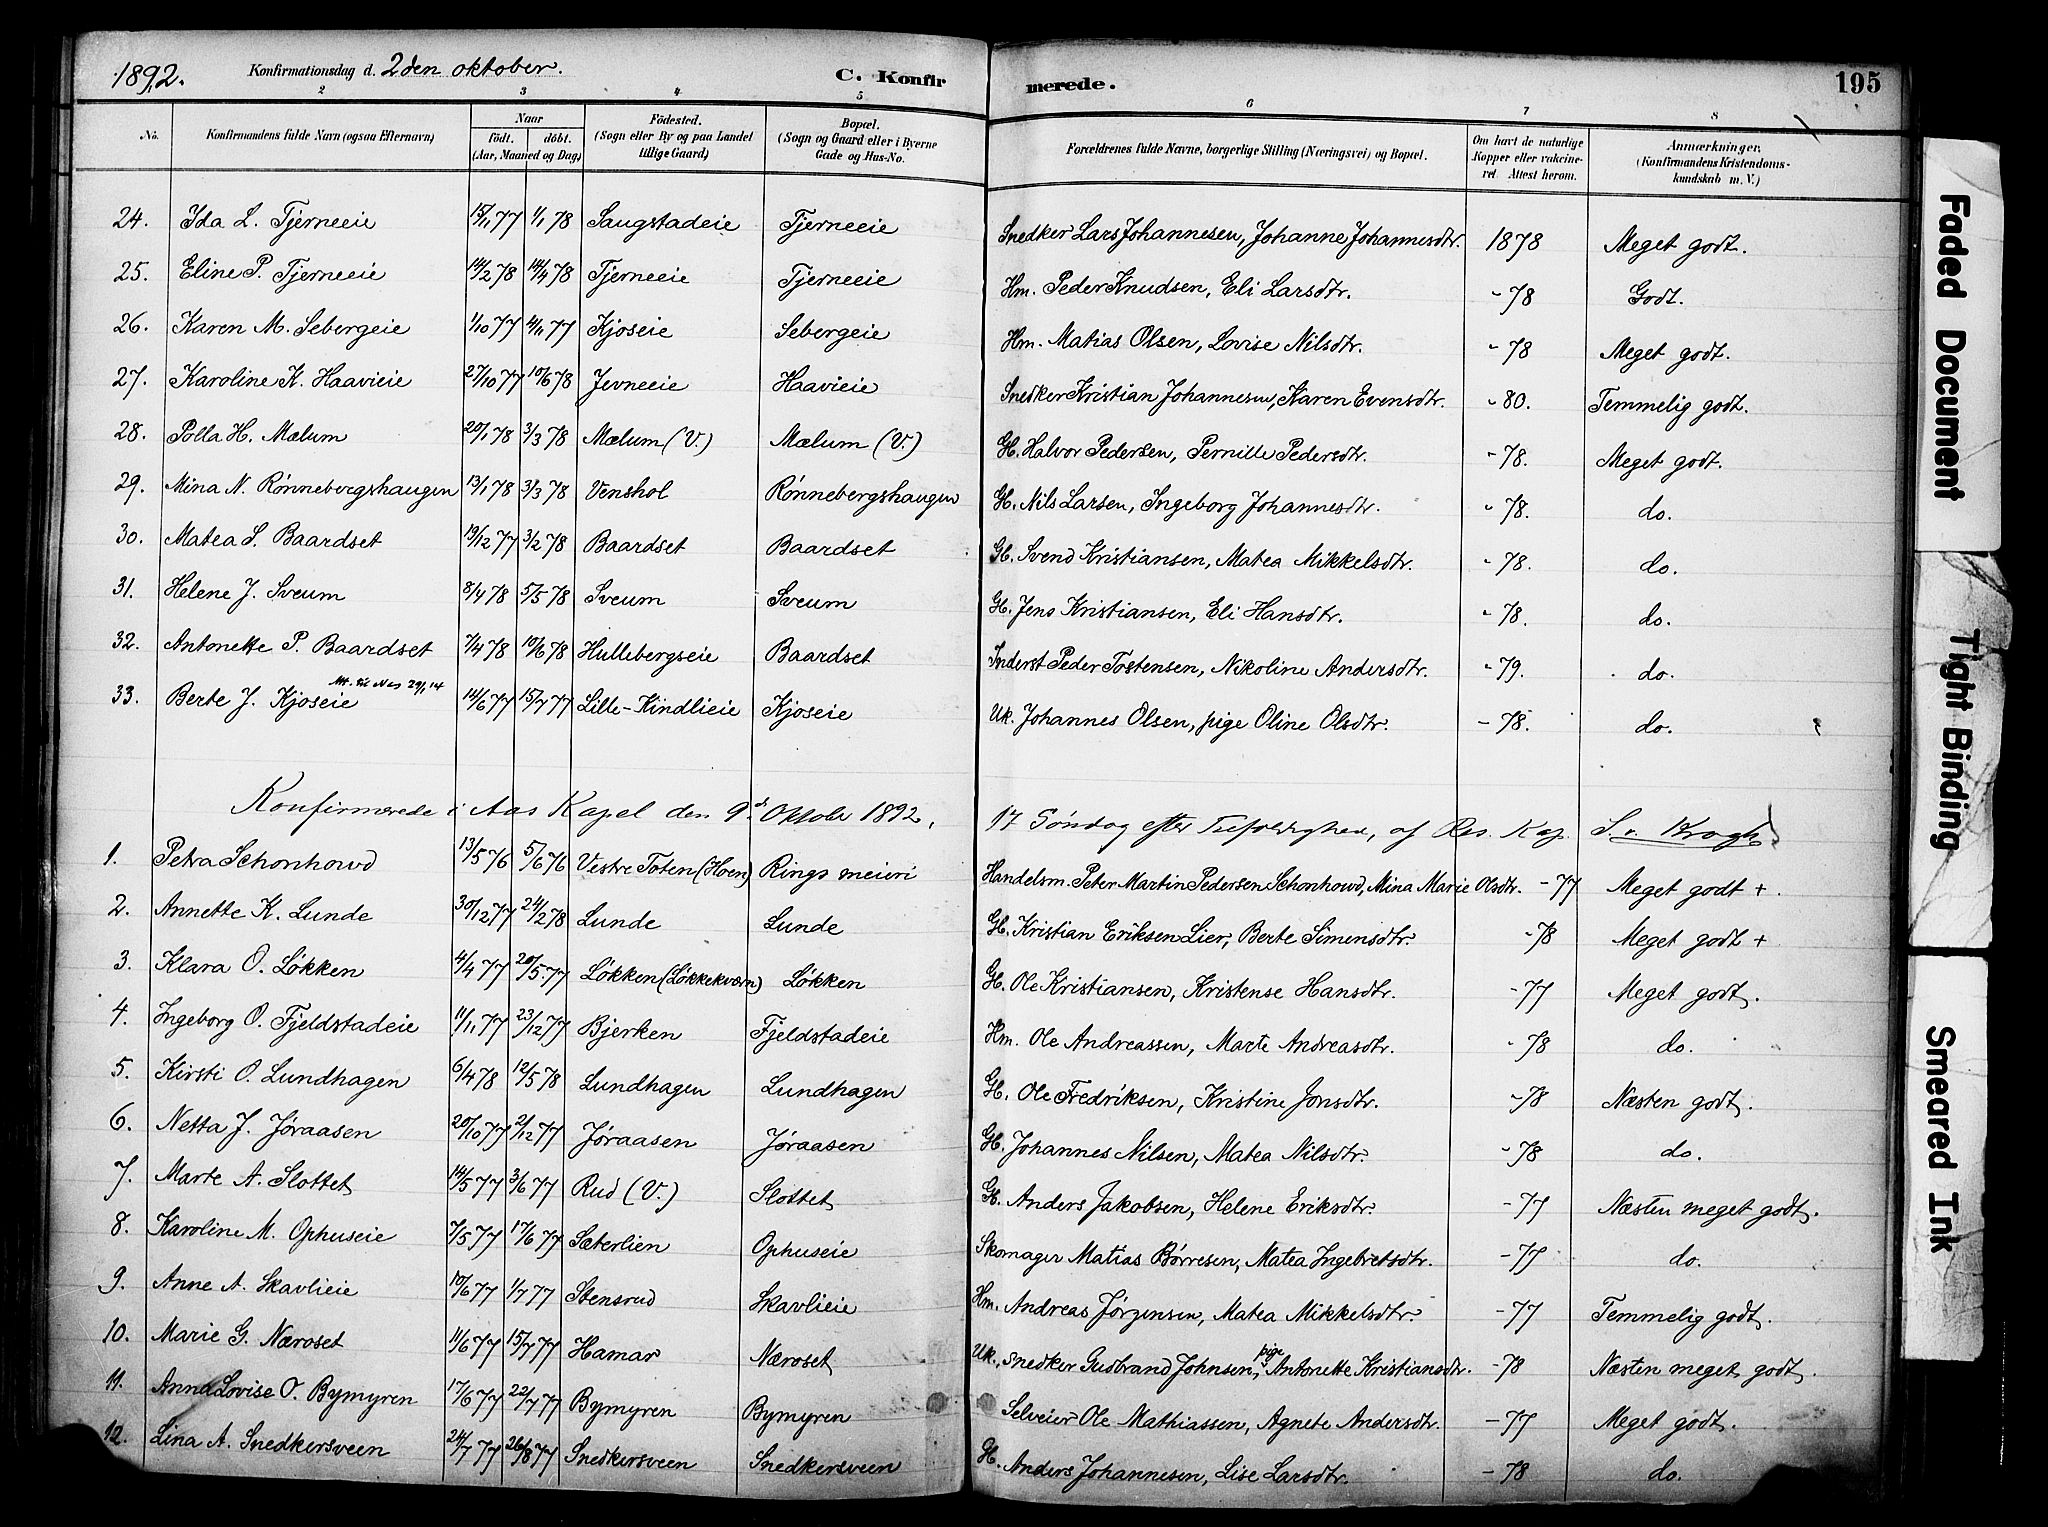 1892. Konfirmationsdag d. 2den oktober. C. Konfirmerede. 195
2 3 4 5 6 7 8
No. Konfirmandens fulde Navn (ogsaa Efternavn) Naar født. døbt. (Aar, Maaned og Dag) Fødested. (Sogn eller By og paa Landet tillige Gaard) Bopæl. (Sogn og Gaard eller i Byerne Gade og Hus-No. Forældrenes fulde Navne, borgerlige Stilling (Næringsvei) og Bopæl. Om havt de naturlige Kopper eller vakcineret. Attest herom. Anmærkninger. (Konfirmandens Kristendomskundskab m. V.)
24. Ida L. Tjerneeie 15/11 77 1/1 78 Saugstadeie Tjerneeie Snedker Lars Johannesen, Johanne Johannesdtr. 1878 Meget godt.
25. Eline P. Tjerneeie 14/2 78 14/4 78 Tjerneeie Tjerneeie Hm. Peder Knudsen, Eli Larsdtr. - 78 Godt.
26. Karen M. Sebergeie 1/10 77 4/11 77 Kjoseie Sebergeie Hm. Matias Olsen, Lovise Nilsdtr. - 78 Meget godt.
27. Karoline K. Haavieie 27/10 77 10/6 78 Jevneeie Haavieie Snedker Kristian Johannesen, Karen Evensdtr. - 80. Temmelig godt.
28. Polla H. Mælum 20/1 78 3/3 78 Mælum (V.) Mælum (V.) G. Halvor Pedersen, Pernille Pedersdtr. - 78. Meget godt.
29. Mina N. Rønnebergshaugen 13/1 78 3/3 78 Venshol Rønnebergshaugen G. Nils Larsen, Ingeborg Johannesdtr. - 78. do.
30. Matea S. Baardset 19/12 77 3/2 78 Baardset Baardset G. Svend Kristiansen, Matea Mikkelsdtr. - 78. do.
31. Helene J. Sveum 8/4 78 5/5 78 Sveum Sveum G. Jens Kristiansen, Eli Hansdtr. - 78. do.
32. Antonette P. Baardset 7/4 78 10/6 78 Hullebergseie Baardset Inderst Peder Tostensen, Nikoline Andersdtr. - 79. do.
Att. til Nes 29/1 14
33. Berte J. Kjoseie 14/6 77 15/7 77 Lille-Kindlieie Kjoseie Uk. Johannes Olsen, pige Oline Olsdtr. - 78. do.
Konfirmerede i Aas Kapel den 9d. Oktobr 1892, 17 Søndag efter Trefoldighed, af Res. Kap. S. v. Krogh
1. Petra Schonhowd 13/5 76 5/6 76 Vestre Toten (Hoen) Rings meieri Handelsm. Peter Martin Pedersen Schonhowd, Mina Marie Olsdtr. - 77 Meget godt +
2. Annette K. Lunde 30/12 77 24/2 78 Lunde Lunde G. Kristian Eriksen Lier, Berte Simensdtr. - 78 Meget godt +
3. Klara O. Løkken 4/4 77 20/5 77 Løkken (Løkkekværn) Løkken G. Ole Kristiansen, Kristense Hansdtr. - 77 Meget godt.
4. Ingeborg O. Fjeldstadeie 11/11 77 23/12 77 Bjerken Fjeldstadeie Hm. Ole Andreassen, Marte Andreasdtr. - 78 do.
5. Kirsti O. Lundhagen 6/4 78 12/5 78 Lundhagen Lundhagen G. Ole Fredriksen, Kristine Jonsdtr. - 78 Næsten godt.
6. Netta J. Jøraasen 20/10 77 2/12 77 Jøraasen Jøraasen G. Johannes Nilsen, Matea Nilsdtr. - 78 do.
7. Marte A. Slottet 14/5 77 3/6 77 Rud (V.) Slottet G. Anders Jakobsen, Helene Eriksdtr. - 77 Næsten meget godt.
8. Karoline M. Ophuseie 7/5 77 17/6 77 Sæterlien Ophuseie Skomager Matias Børresen, Matea Ingebretsdtr. - 77 do.
9. Anne A. Skavlieie 10/6 77 1/7 77 Stensrud Skavlieie Hm. Andreas Jørgensen, Matea Mikkelsdtr. - 77 Temmelig godt.
10. Marie G. Næroset 11/6 77 15/7 77 Hamar Næroset Uk. Snedker Gudbrand Johnsen, pige Antonette Kristiansdtr. - 78 Næsten meget godt.
11. Anna Lovise O. Bymyren 17/6 77 22/7 77 Bymyren Bymyren Selveier Ole Mathiassen, Agnete Andersdtr. - 77 Meget godt.
12. Lina A. Snedkersveen 24/7 77 26/8 77 Snedkersveen Snedkersveen G. Anders Johannesen, Lise Larsdtr. - 78 do.
Faded Document
Tight Binding
Smeared Ink